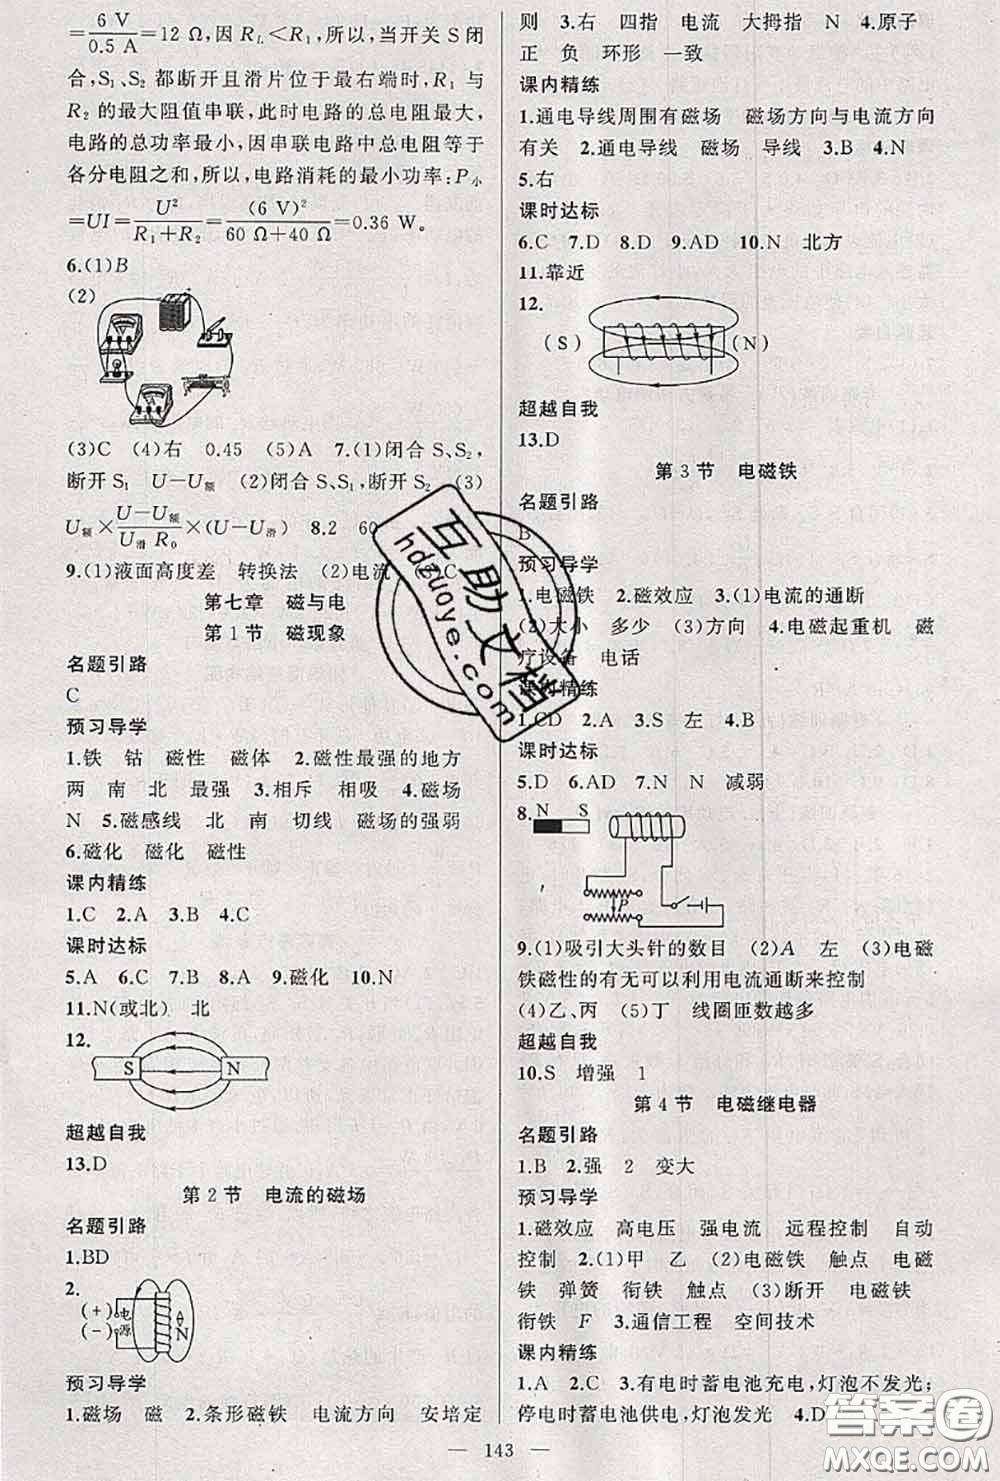 =6 V/0.5 A=12 Ω,因 R_L<R₁,所以,当开关 S 闭
合,S₁、S₂ 都断开且滑片位于最右端时,R₁ 与
R₂ 的最大阻值串联,此时电路的总电阻最大,
电路的总功率最小,因串联电路中总电阻等于
各分电阻之和,所以,电路消耗的最小功率:P小
=UI=U²/(R₁+R₂)=(6 V)²/(60 Ω+40 Ω)=0.36 W。
6.(1)B
(2)
(3)C (4)右 0.45 (5)A 7.(1)闭合 S、S₂,
断开 S₁ U-U额 (2)闭合 S、S₁,断开 S₂ (3)
U额×(U-U额)/(U滑 R₀)×(U-U滑) 8.2 60
9.(1)液面高度差 转换法 (2)电流 C
第七章 磁与电
第 1 节 磁现象
名题引路
C
预习导学
1.铁 钴 磁性 磁体 2.磁性最强的地方
两 南 北 最强 3.相斥 相吸 4.磁场
N 5.磁感线 北 南 切线 磁场的强弱
6.磁化 磁化 磁性
课内精练
1.C 2.A 3.B 4.C
课时达标
5.A 6.C 7.B 8.A 9.磁化 10.N
11.N(或北) 北
12.
S N
超越自我
13.D
第 2 节 电流的磁场
名题引路
1.BD
2.
(+) 电
(-) 源
N
预习导学
1.磁场 磁 2.条形磁铁 电流方向 安培定
则 3.右 四指 电流 大拇指 N 4.原子
正 负 环形 一致
课内精练
1.通电导线周围有磁场 磁场方向与电流方向
有关 2.通电导线 磁场 导线 3.B 4.N
5.右
课时达标
6.C 7.D 8.D 9.AD 10.N 北方
11.靠近
12.
(S) (N)
超越自我
13.D
第 3 节 电磁铁
名题引路
B
预习导学
1.电磁铁 2.磁效应 3.(1)电流的通断
(2)大小 多少 (3)方向 4.电磁起重机 磁
疗设备 电话
课内精练
1.CD 2.A 3.S 左 4.B
课时达标
5.D 6.AD 7.N N 减弱
8.
N S
P
9.(1)吸引大头针的数目 (2)A 左 (3)电磁
铁磁性的有无可以利用电流通断来控制
(4)乙、丙 (5)丁 线圈匝数越多
超越自我
10.S 增强 1
第 4 节 电磁继电器
名题引路
1.B 2.强 2 变大
预习导学
1.磁效应 高电压 强电流 远程控制 自动
控制 2.(1)甲 乙 (2)电磁铁 触点 电磁
铁 弹簧 衔铁 触点 (3)断开 电磁铁
衔铁 F 3.通信工程 空间技术
课内精练
1.A 2.C 3.有电时蓄电池充电,灯泡不发光;
停电时蓄电池供电,灯泡发光 4.D
— 143 —
互助文档
hdzuoye.com
答案圈
MXQE.COM